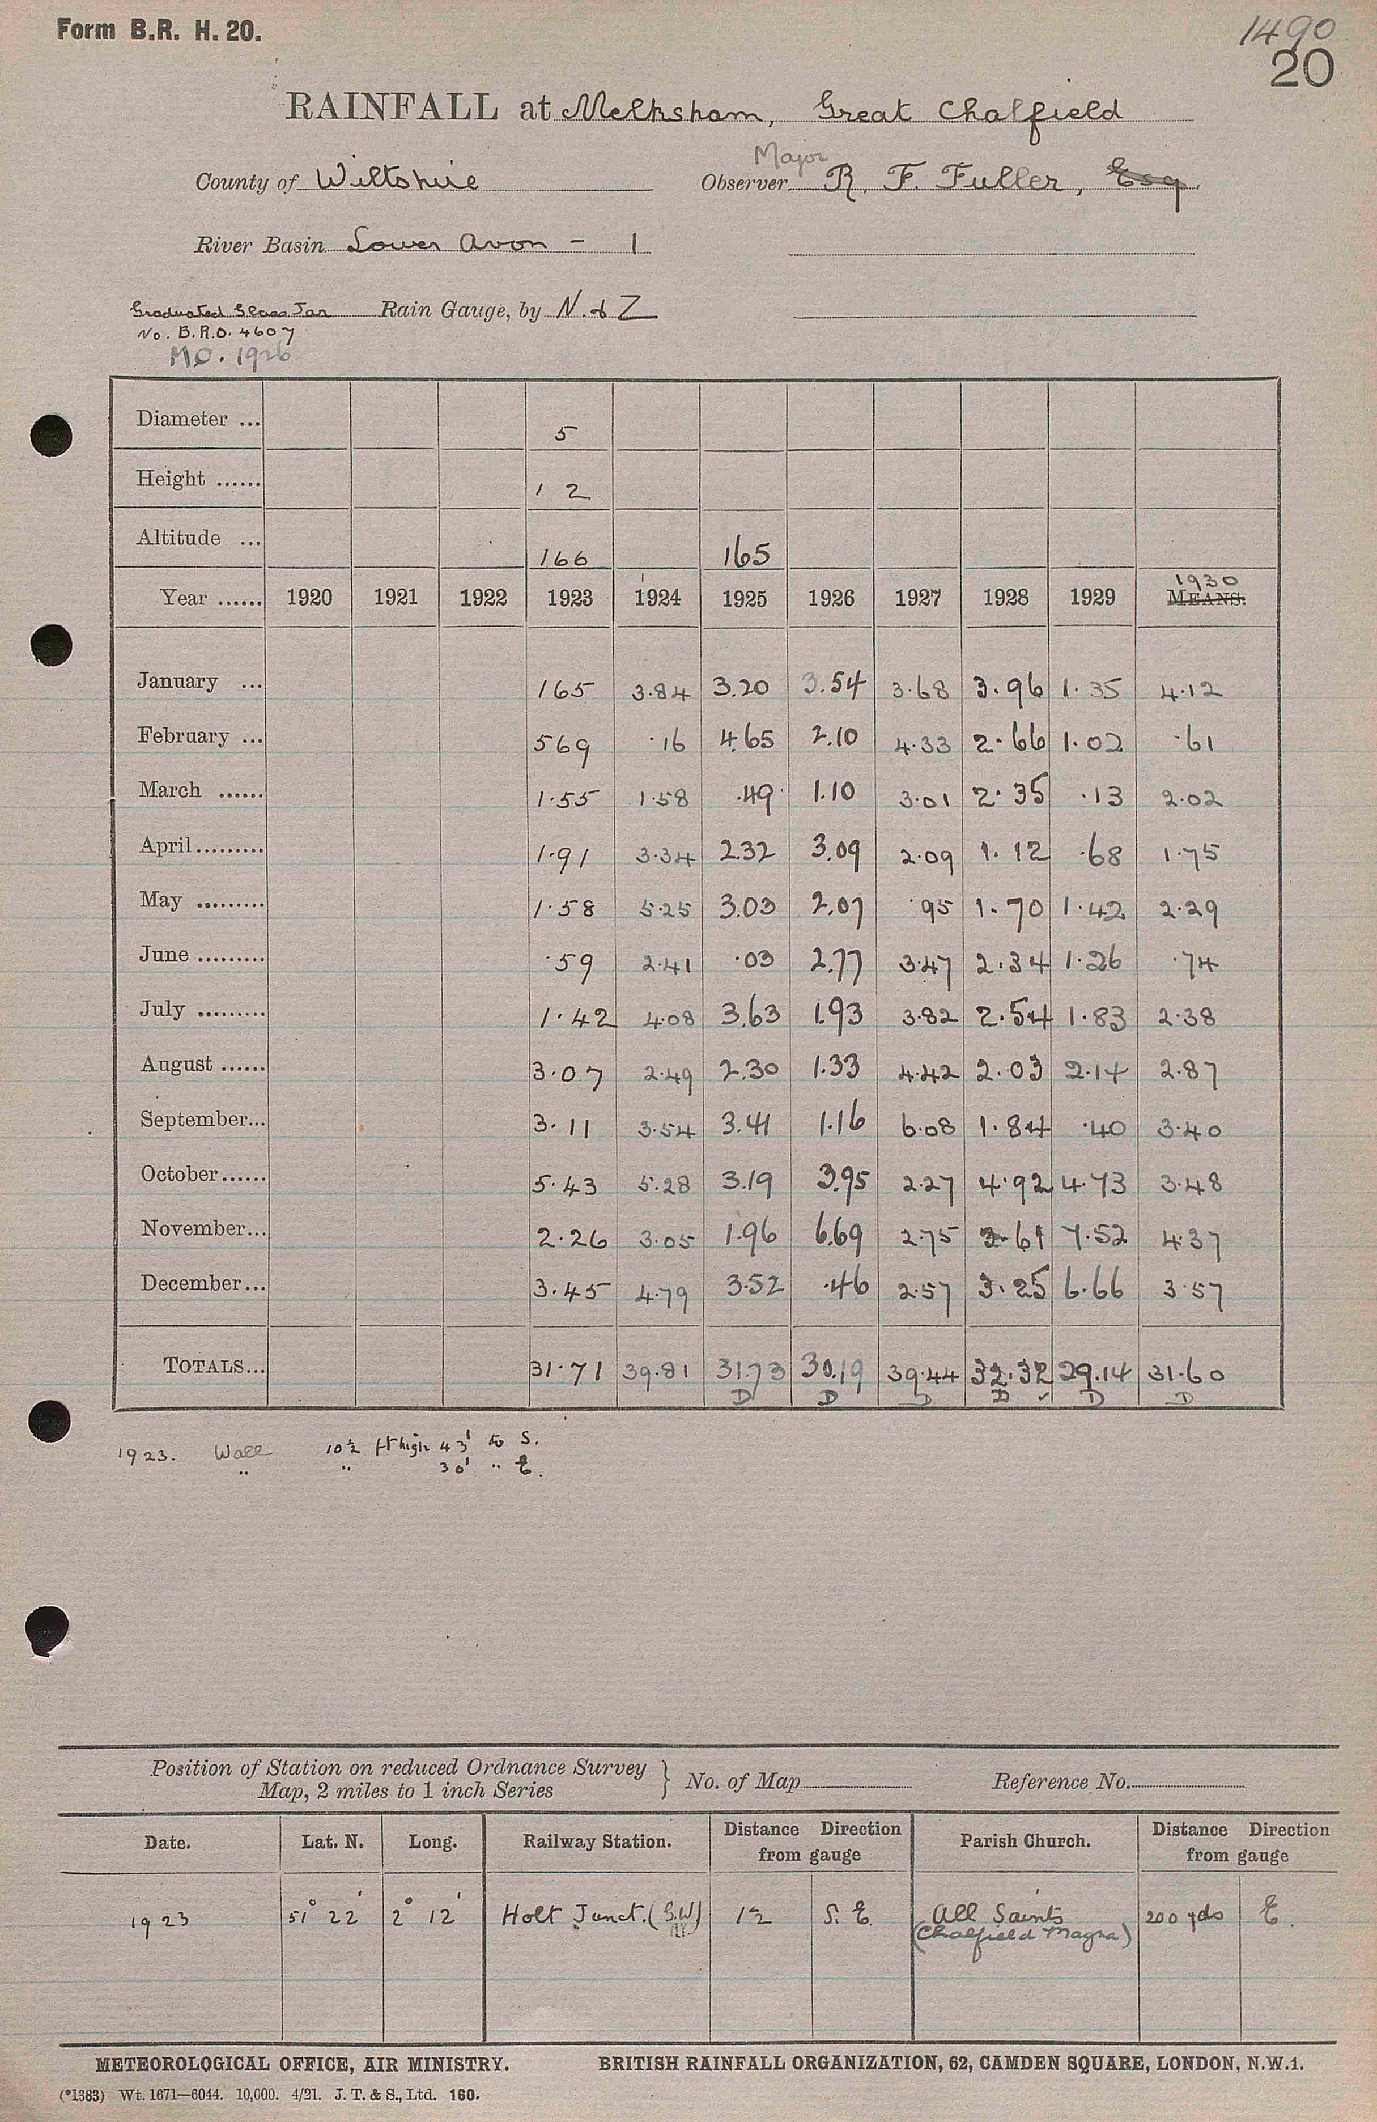 Form B.R. H. 20.
1490
20
RAINFALL at Melksham, Great Chalfield
County of Wiltshire Observer Major R. F. Fuller, Esq
River Basin Lower Avon - 1
Graduated Glass Jar Rain Gauge, by N. & Z
No. B.R.O. 4607
M.O. 1926
Diameter ... 5
Height ...... 12
Altitude ... 166 165
1930
Year ...... 1920 1921 1922 1923 1924 1925 1926 1927 1928 1929 MEANS.
January ... 165 3.84 3.20 3.54 3.68 3.96 1.35 4.12
February ... 569 .16 4.65 2.10 4.33 2.66 1.02 .61
March ...... 1.55 1.58 .49 1.10 3.01 2.35 .13 2.02
April......... 1.91 3.34 2.32 3.09 2.09 1.12 .68 1.75
May ......... 1.58 5.25 3.03 2.07 .95 1.70 1.42 2.29
June ......... .59 2.41 .03 2.77 3.47 2.34 1.26 .74
July ......... 1.42 4.08 3.63 1.93 3.82 2.54 1.83 2.38
August ...... 3.07 2.49 2.30 1.33 4.42 2.03 2.14 2.87
September... 3.11 3.54 3.41 1.16 6.08 1.84 .40 3.40
October...... 5.43 5.28 3.19 3.95 2.27 4.92 4.73 3.48
November... 2.26 3.05 1.96 6.69 2.75 3.61 7.52 4.37
December... 3.45 4.79 3.52 .46 2.57 3.25 6.66 3.57
TOTALS... 31.71 39.81 31.73 30.19 39.44 32.32 29.14 31.60
D D D D ✓ D D
1923. Wall 10½ ft high 43' to S.
" " 30' " E.
Position of Station on reduced Ordnance Survey
Map, 2 miles to 1 inch Series } No. of Map Reference No.
Date. Lat. N. Long. Railway Station. Distance Direction from gauge Parish Church. Distance Direction from gauge
1923 51° 22' 2° 12' Holt Junct. (G.W.) 1½ S. E. All Saints 200 yds E.
(Chalfield Magna)
METEOROLOGICAL OFFICE, AIR MINISTRY. BRITISH RAINFALL ORGANIZATION, 62, CAMDEN SQUARE, LONDON, N.W.1.
(*1383) Wt. 1671—6044. 10,000. 4/21. J. T. & S., Ltd. 160.